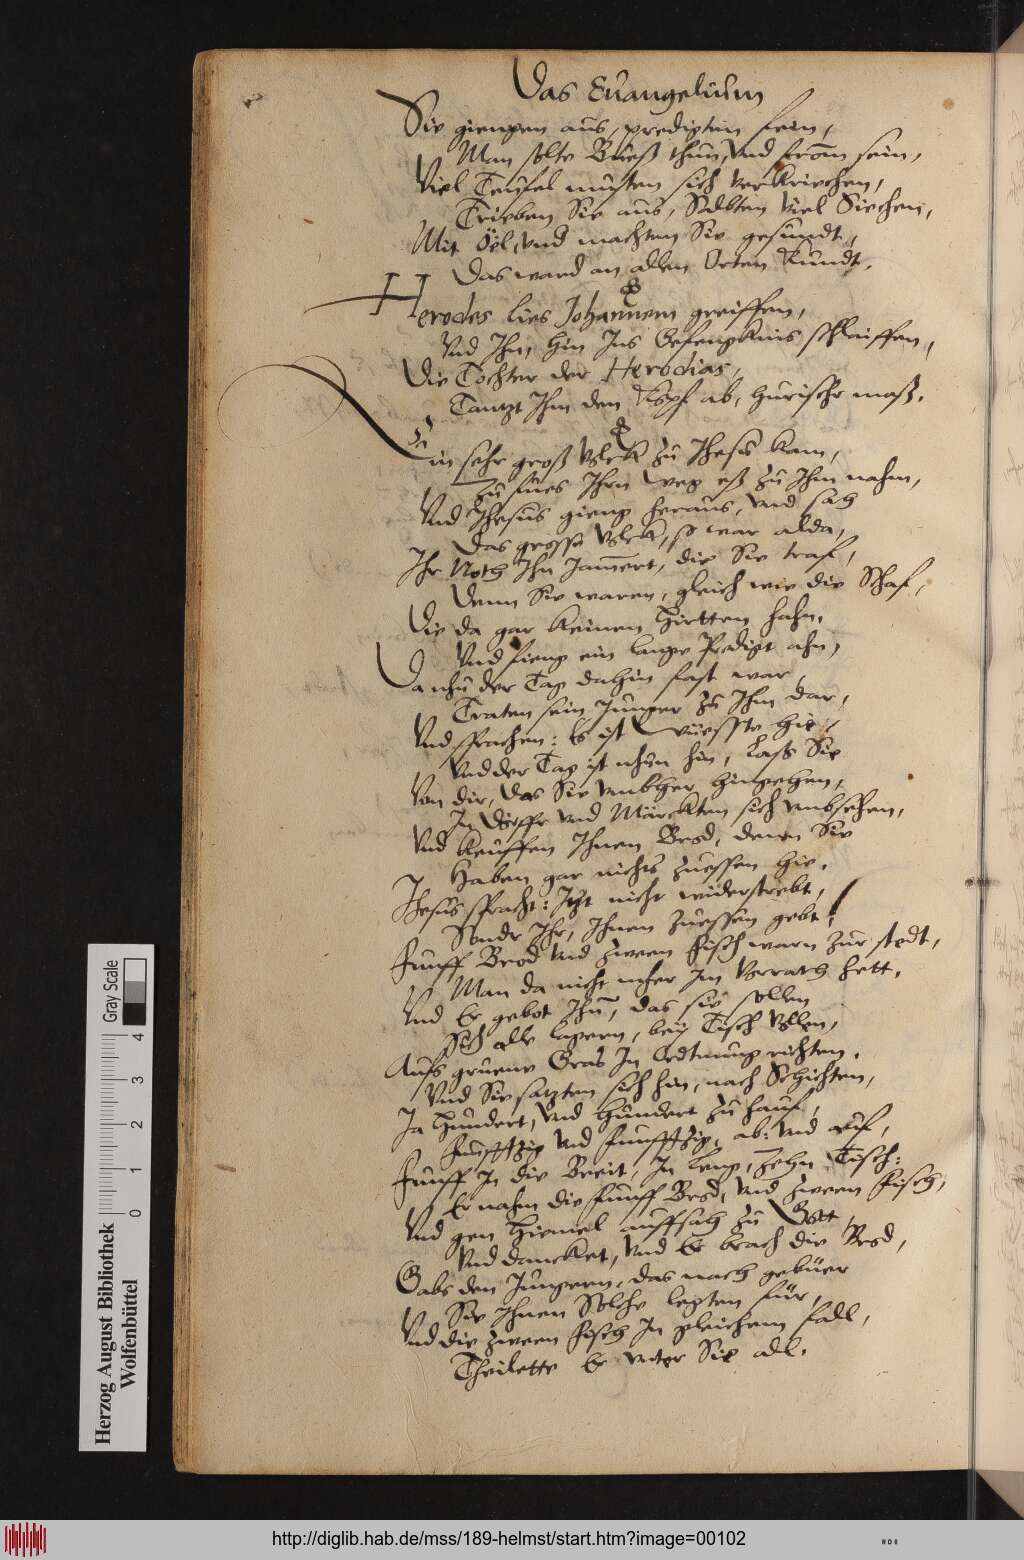 Das Euangelium
Sie giengen aus, predigten fein,
Man solte Bueß thun, vnd from̄ sein,
Viel Teufel musten sich verkriechen,
Trieben Sie aus, Salbten viel Siechen,
Mit Öel, vnd machten Sie gesundt,
Das ward an allen Orten Kundt.
Herodes lies Johannem greiffen,
Vnd Ihn, hin Ins Gefengknis schleiffen,
Die Tochter der Herodias,
Tantzt Ihm den Kopf ab, hurischr maß.
Ein sehr groß Volck zu Jhesu kam,
Zu fues Ihrn weg eß zu Ihm nahm,
Vnd Jhesus gieng heraus, vnd sah
Das grosse Volck, so war alda,
Ihr Noth Ihn Jam̄ert, die Sie traf,
Denn Sie waren, gleich wie die Schaf,
Die da gar keinen Hirtten hahn,
Vnd fieng ein lange Predigt ahn,
Da nhu der Tag dahin fast war,
Traten sein Junger zu Ihm dar,
Vnd sprachen: Es ist Wuesste hie,
Vnd der Tag ist nhun hin, Lass Sie
Von dir, das Sie vmbher hingehen,
In Dörffr vnd Märckten sich vmbsehen,
Vnd keuffen Ihnen Brod, denn Sie
Haben gar nichts zuessen hie.
Jhesus spracht: Itzt nicht widerstrebt,
Sondr Ihr, Ihnen zuessen gebt:
Funff Brod vnd zween Fisch warn zur stedt,
Man da nicht mher im Vorrath hett,
Vnd Er gebot Ihn̄, das sie sollen
Sich alle lagern, bey Tisch Vollen,
Aufs gruene Gras In Ordtnung richten,
Vnd Sie satzten sich hin, nach Schichten,
Ja Hundert, vnd Hundert zu hauf,
Funfftzig vnd Funfftzig, ab: vnd auf,
Funff In die Breit, In leng, zehn Tisch:
Er nahm die Funff Brod, vnd zween Fisch,
Vnd gen Himmel auffsah zu Gott,
Vnd dancket, vnd Er brach die Brod,
Gabs den Jungern, das nach gebüer
Sie Ihnen Solche legten für,
Vnd die zween Fisch In gleichem fall,
Theilette Er vnter Sie all.
Herzog August Bibliothek
Wolfenbüttel
0 1 2 3 4
Gray Scale
http://diglib.hab.de/mss/189-helmst/start.htm?image=00102